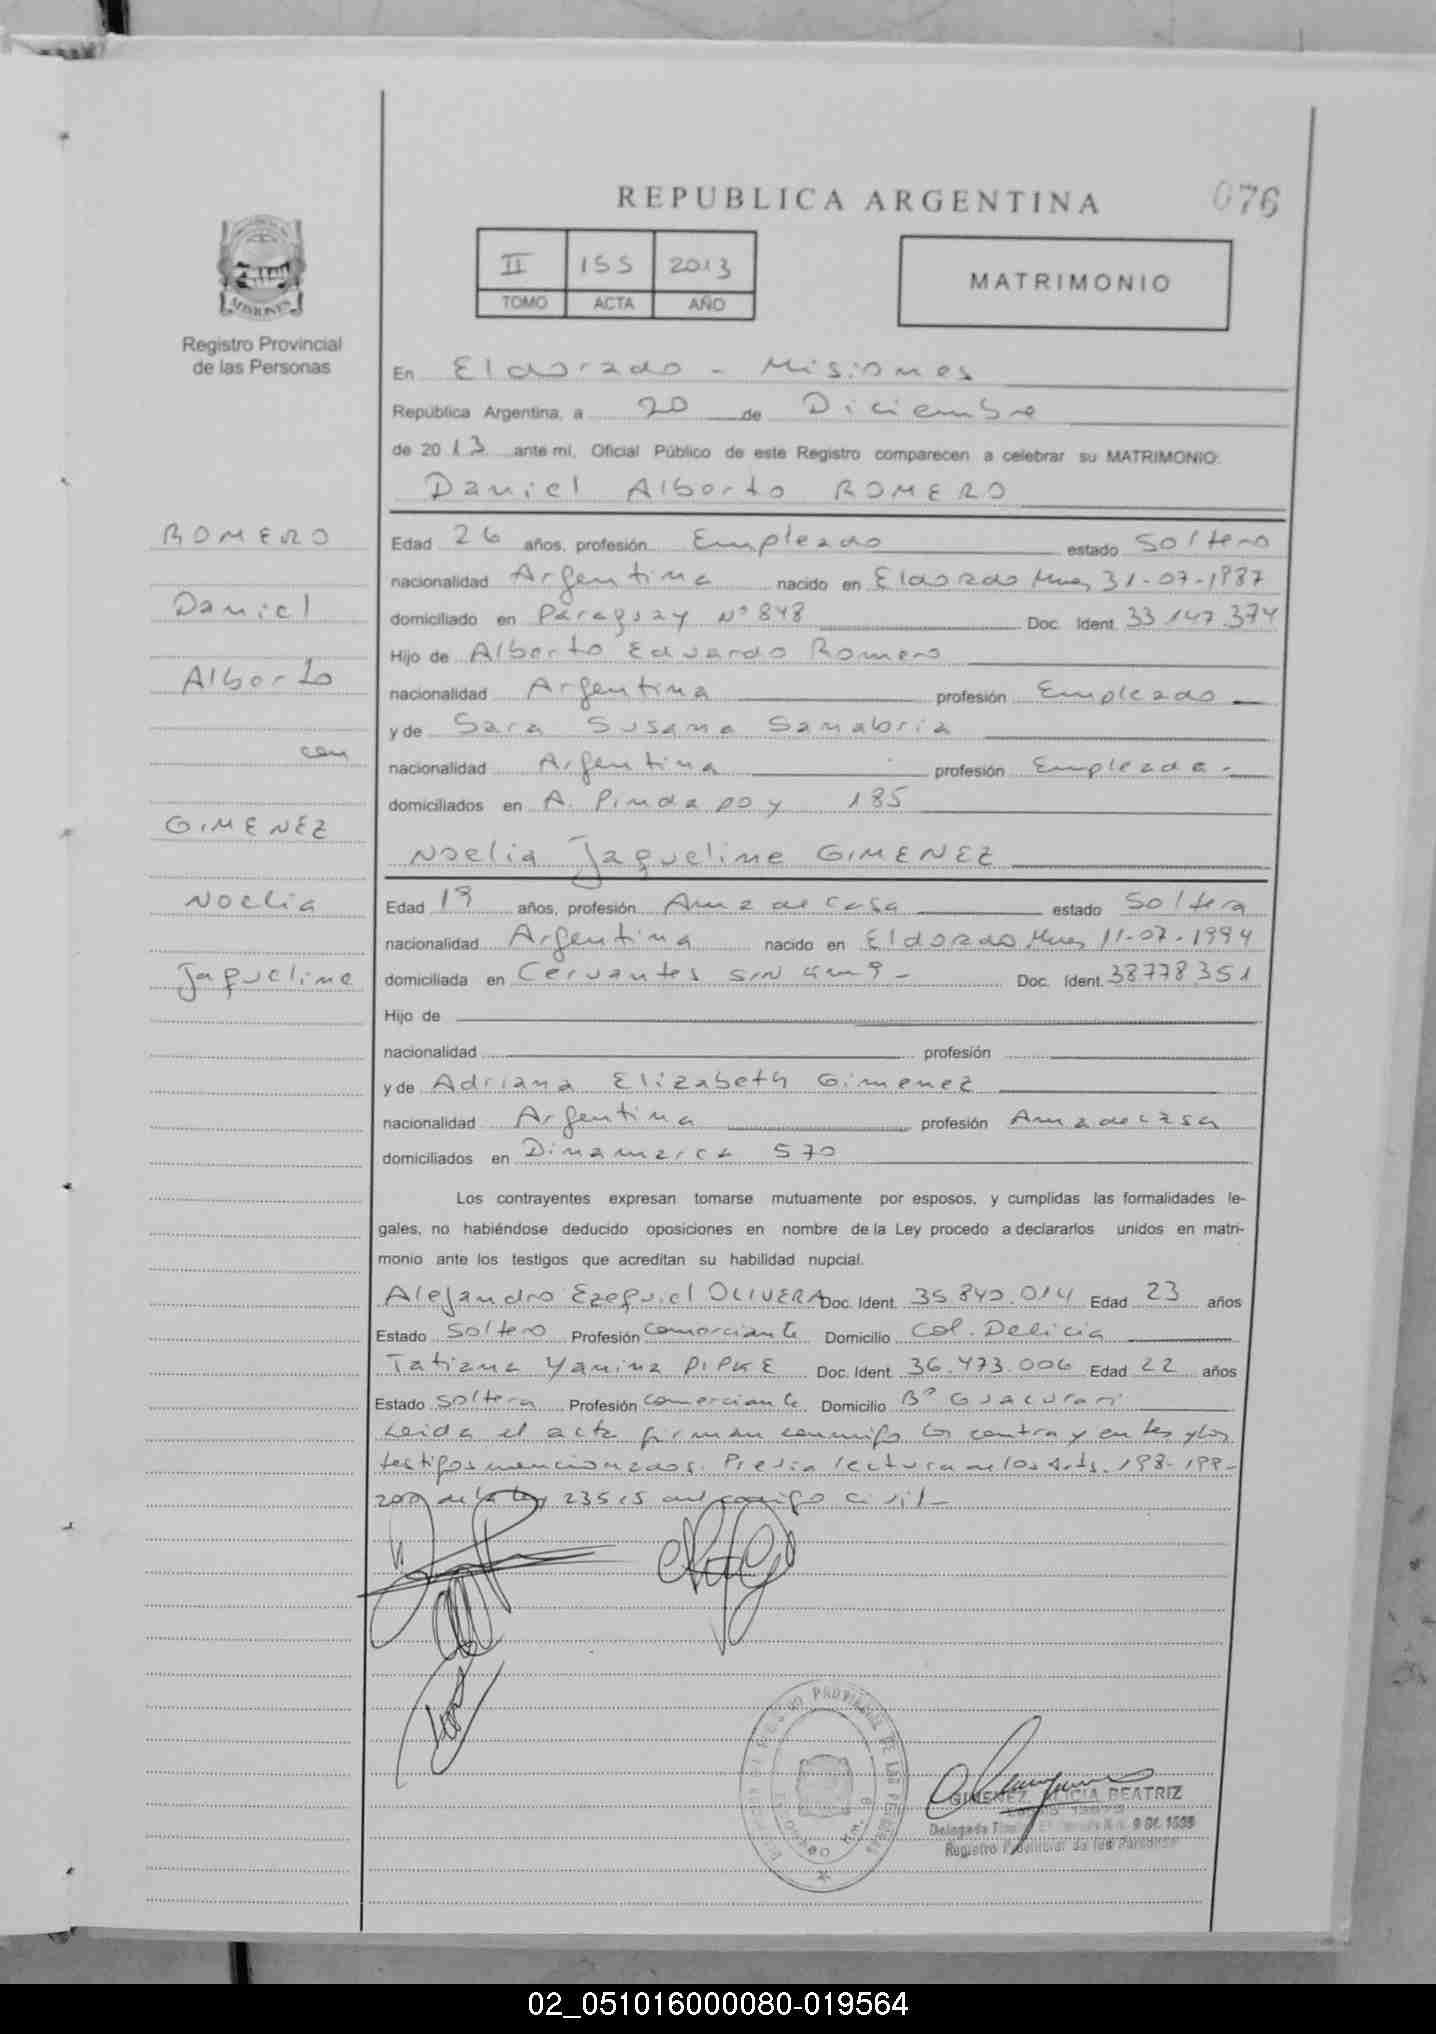 REPUBLICA ARGENTINA
076
II 155 2013
TOMO ACTA AÑO
MATRIMONIO
MISIONES
Registro Provincial
de las Personas
En Eldorado - Misiones
República Argentina, a 20 de Diciembre
de 2013 ante mí, Oficial Público de este Registro comparecen a celebrar su MATRIMONIO:
Daniel Alberto ROMERO
ROMERO
Daniel
Alberto
con
GIMENEZ
Noelia
Jaqueline
Edad 26 años, profesión Empleado estado Soltero
nacionalidad Argentina nacido en Eldorado Mnes 31-07-1987
domiciliado en Paraguay Nº 848 Doc. Ident. 33.147.374
Hijo de Alberto Eduardo Romero
nacionalidad Argentina profesión Empleado
y de Sara Susana Sanabria
nacionalidad Argentina profesión Empleada -
domiciliados en A. Pindapoy 185
Noelia Jaqueline GIMENEZ
Edad 19 años, profesión Ama de Casa estado Soltera
nacionalidad Argentina nacido en Eldorado Mnes 11-07-1994
domiciliada en Cervantes S/N Km 9 - Doc. Ident. 38778.351
Hijo de
nacionalidad profesión
y de Adriana Elizabeth Gimenez
nacionalidad Argentina profesión Ama de casa
domiciliados en Dinamarca 570
Los contrayentes expresan tomarse mutuamente por esposos, y cumplidas las formalidades le-
gales, no habiéndose deducido oposiciones en nombre de la Ley procedo a declararlos unidos en matri-
monio ante los testigos que acreditan su habilidad nupcial.
Alejandro Ezequiel OLIVERA Doc. Ident. 35.840.014 Edad 23 años
Estado Soltero Profesión Comerciante Domicilio Col. Delicia
Tatiana Yanina PIPKE Doc. Ident. 36.473.006 Edad 22 años
Estado Soltera Profesión Comerciante Domicilio Bº Guacurari
Leida el acta firman conmigo los contrayentes y los
testigos mencionados. Previa lectura de los Arts. 198-199-
200 de la ley 23515 del codigo civil -
REGISTRO PROVINCIAL DE LAS PERSONAS
GIMENEZ, ALICIA BEATRIZ
Registro Provincial de las Personas
02_051016000080-019564